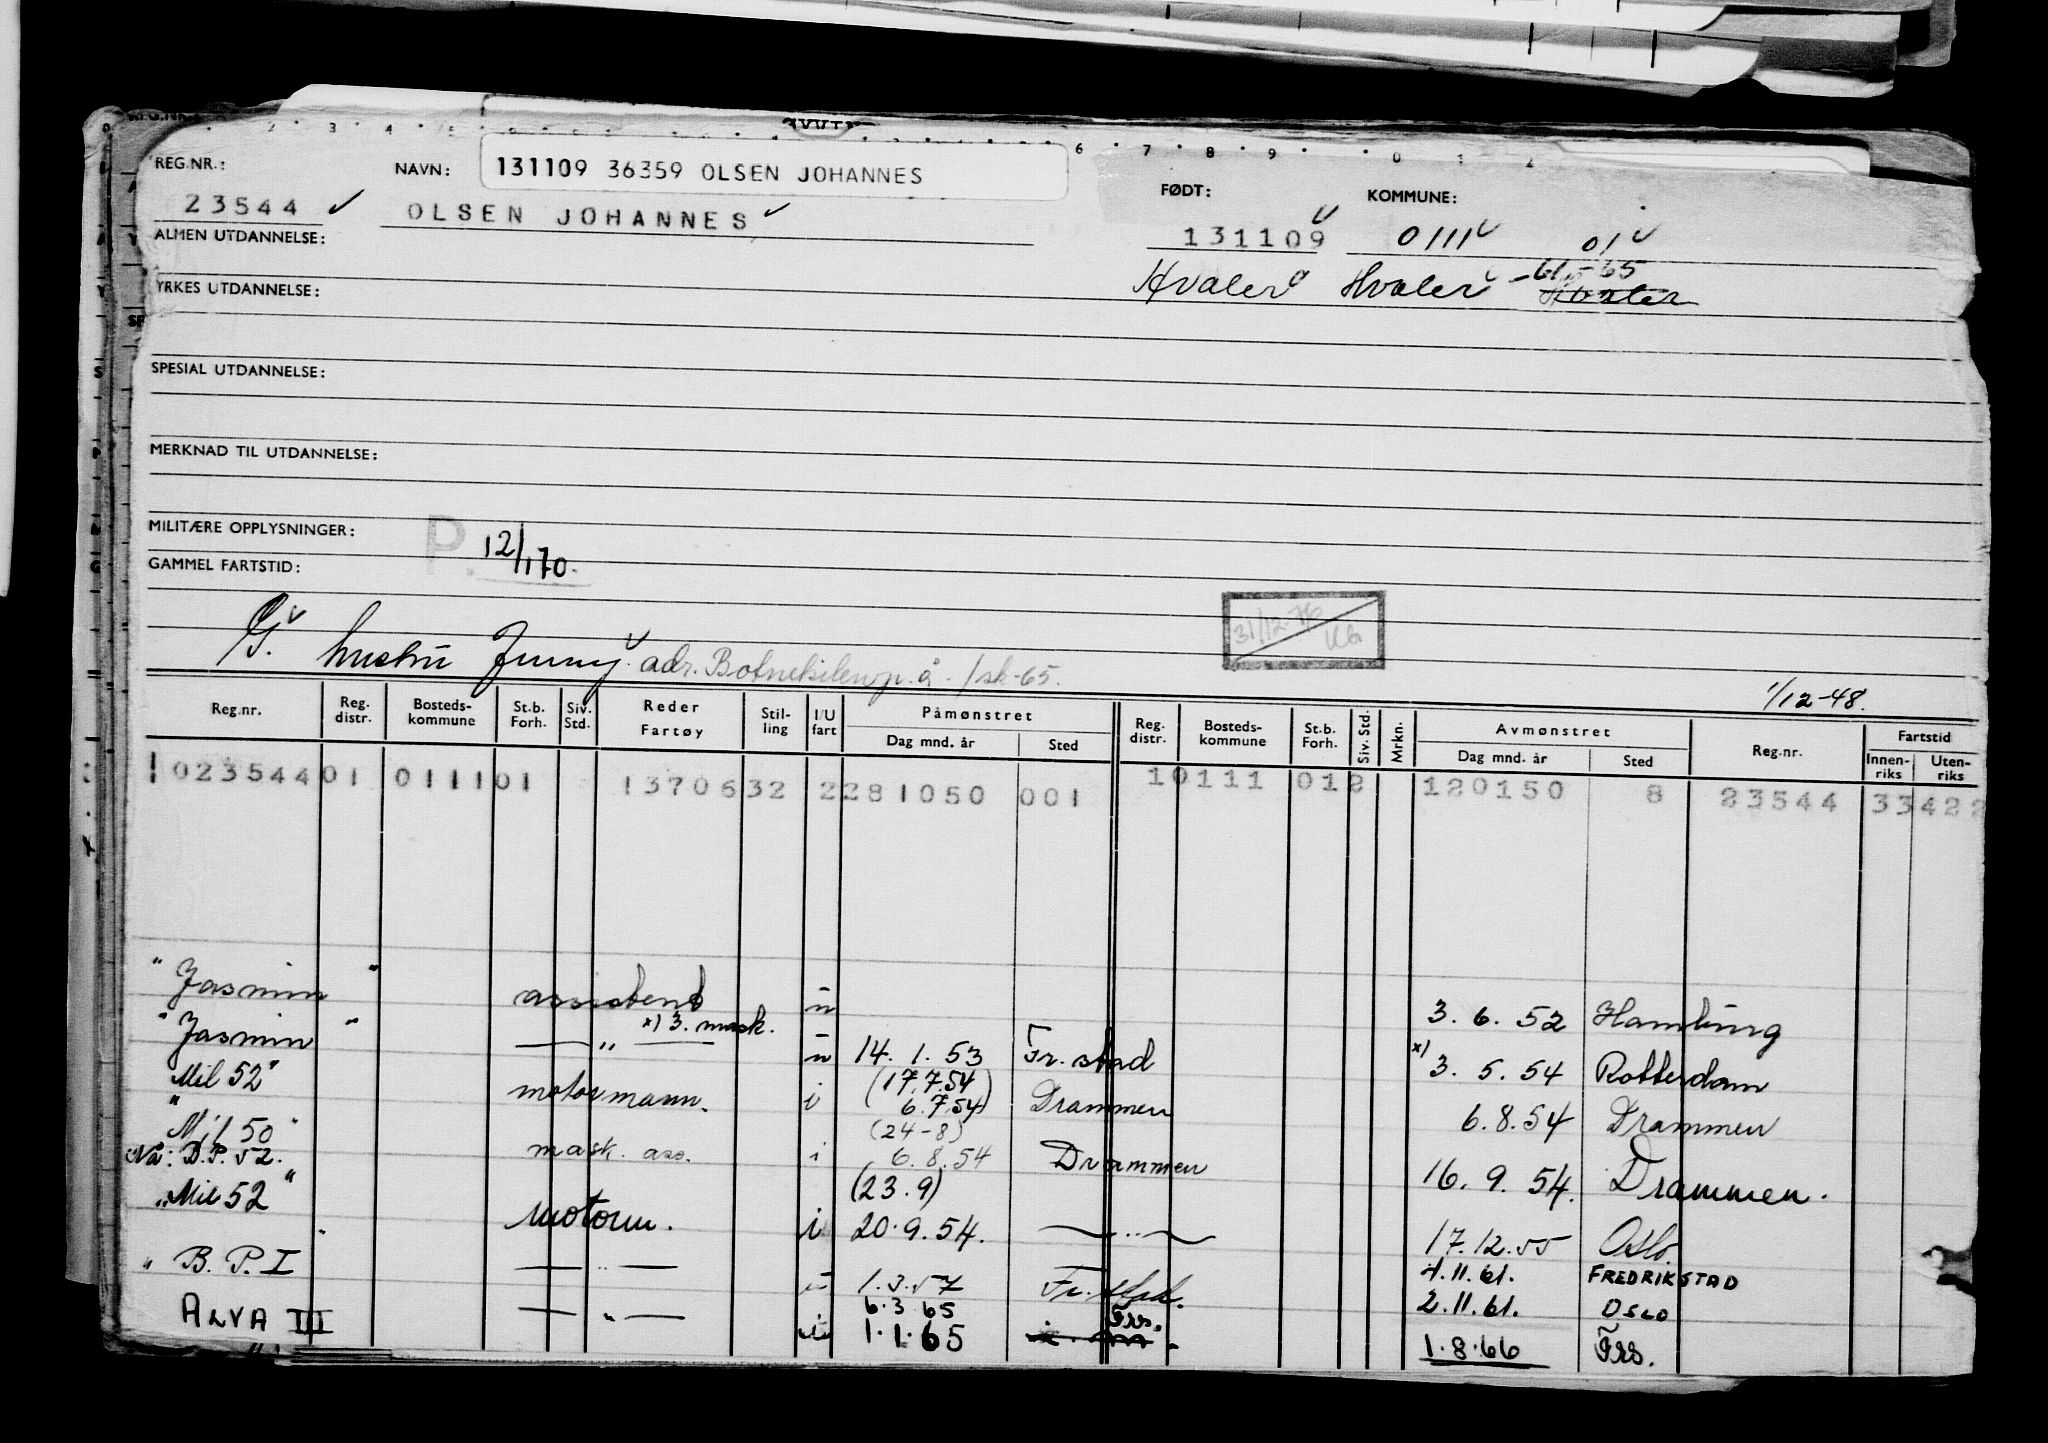 REG.NR.: NAVN: 131109 36359 OLSEN JOHANNES FØDT: KOMMUNE:
23544 ✓ OLSEN JOHANNES ✓ 131109 0111 01
ALMEN UTDANNELSE:
Hvaler Hvaler -61-65
YRKES UTDANNELSE:
SPESIAL UTDANNELSE:
MERKNAD TIL UTDANNELSE:
MILITÆRE OPPLYSNINGER: P. 12/1 70.
GAMMEL FARTSTID:
31/12-76
G. hustru Jenny adr. Botnekilen p.å. /sk-65.
1/12-48.
Reg.nr. Reg. distr. Bosteds- kommune St.b. Forh. Siv. Std. Reder Fartøy Stil- ling I/U fart Påmønstret Dag mnd. år Sted Reg. distr. Bosteds- kommune St.b. Forh. Siv. Std. Mrkn. Avmønstret Dag mnd. år Sted Reg.nr. Fartstid Innen- riks Uten- riks
1023544 01 0111 01 1370632 2281050 001 10111 012 120150 8 23544 33422
" Jasmin " assistent u 3. 6. 52 Hamburg
x) 3. mask.
" Jasmin " — " — u 14. 1. 53 Fr.stad x) 3. 5. 54 Rotterdam
(17.7.54)
Mil 52" motormann. i 6.7.54 Drammen 6.8.54 Drammen
(24-8)
" Mil 50 " mask. ass. i 6.8.54 Drammen 16. 9. 54. Drammen.
Nå: D.P. 52.
(23.9)
"Mil 52" motorm. i 20.9.54. — " — 17.12.55 Oslo
" B. P. I " — " — 1.3.57 Fr.stad. 4.11.61. FREDRIKSTAD
6.3.65 Frs. 2.11.61. OSLO
ALVA III — " — 1.1.65 1.8.66 Frs.